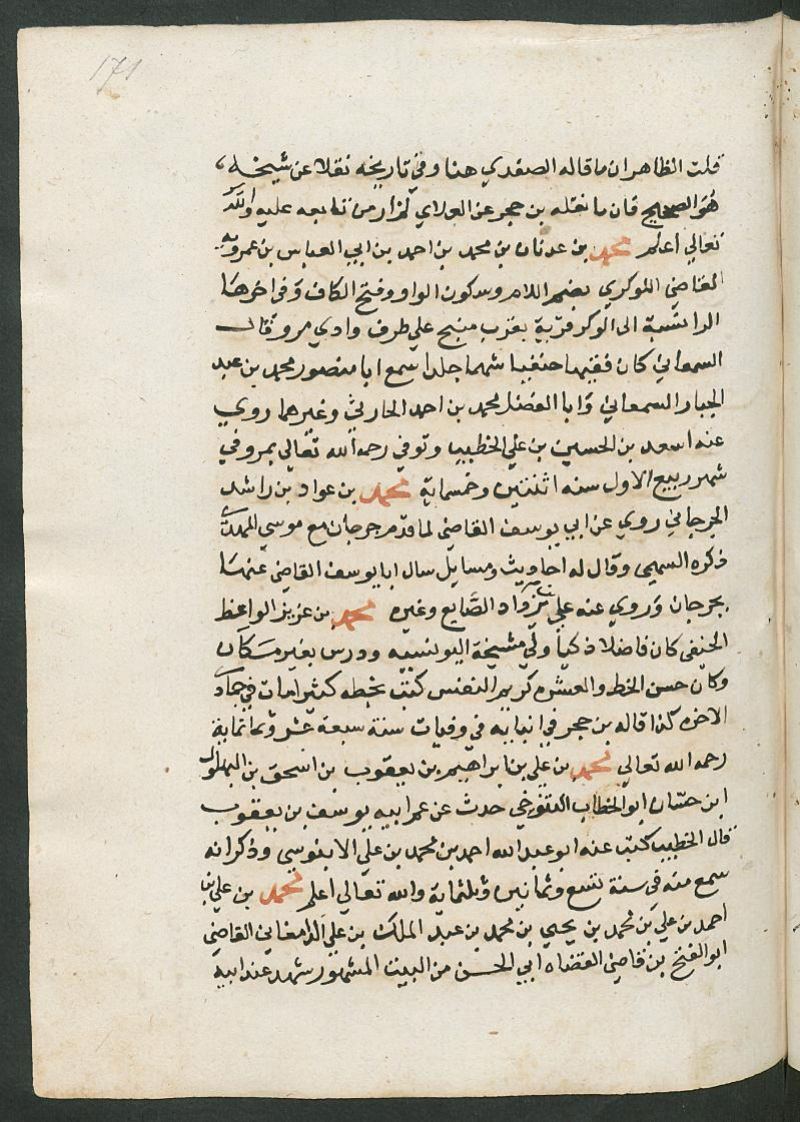 171
قلت الظاهر ان ما قاله الصفدي هنا وفي تاريخه نقلا عن شيخه
هو الصحيح فان ما نقله بن حجر عن العلاي لم ار من تابعه عليه والله
تعالي أعلم محمد بن عدنان بن محمد بن احمد بن ابي العباس بن عمرويه
القاضي اللوكري بضم اللام وسكون الواو وفتح الكاف وفي اخرها
الرا نسبة الى الوكر قرية بقرب منبج علي طرف وادي مرو قال
السمعاني كان فقيها حنفيا شهما جلدا سمع ابا منصور محمد بن عبد
الجبار السمعاني وابا الفضل محمد بن احمد الحارثي وغيرهما روي
عنه اسعد بن الحسين بن علي الخطيب وتوفي رحمه الله تعالي بمرو في
شهر ربيع الاول سنه اثنتين وخمسماية محمد بن عواد بن راشد
الجرجاني روي عن ابي يوسف القاضي لما قدم جرجان مع موسي المهدي
ذكره السهمي وقال له احاديث ومسايل سال ابا يوسف القاضي عنها
بجرجان وروي عنه علي بن يزداد الصايغ وغيره محمد بن عزيز الواعظ
الحنفي كان فاضلا ذكيا ولي مشيخة اليونسيه ودرس بغير مكان
وكان حسن الخط والعشره كريم النفس كتب بخطه كثيرا مات في جمادي
الاخره كذا قاله بن حجر في انبايه في وفيات سنة سبعة عشر وثمانماية
رحمه الله تعالي محمد بن علي بن ابراهيم بن يعقوب بن اسحق بن البهلول
ابن حسان ابو الخطاب التنوخي حدث عن عم ابيه يوسف بن يعقوب
قال الخطيب كتب عنه ابو عبد الله احمد بن محمد بن علي الابنوسي وذكر انه
سمع منه في سنة تسع وثمانين وثلثماية والله تعالي اعلم محمد بن علي بن
احمد بن علي بن محمد بن يحيي بن محمد بن عبد الملك بن علي الدامغاني القاضي
ابو الفتح بن قاضي القضاه ابي الحسن من البيت المشهور شهد عند ابيه